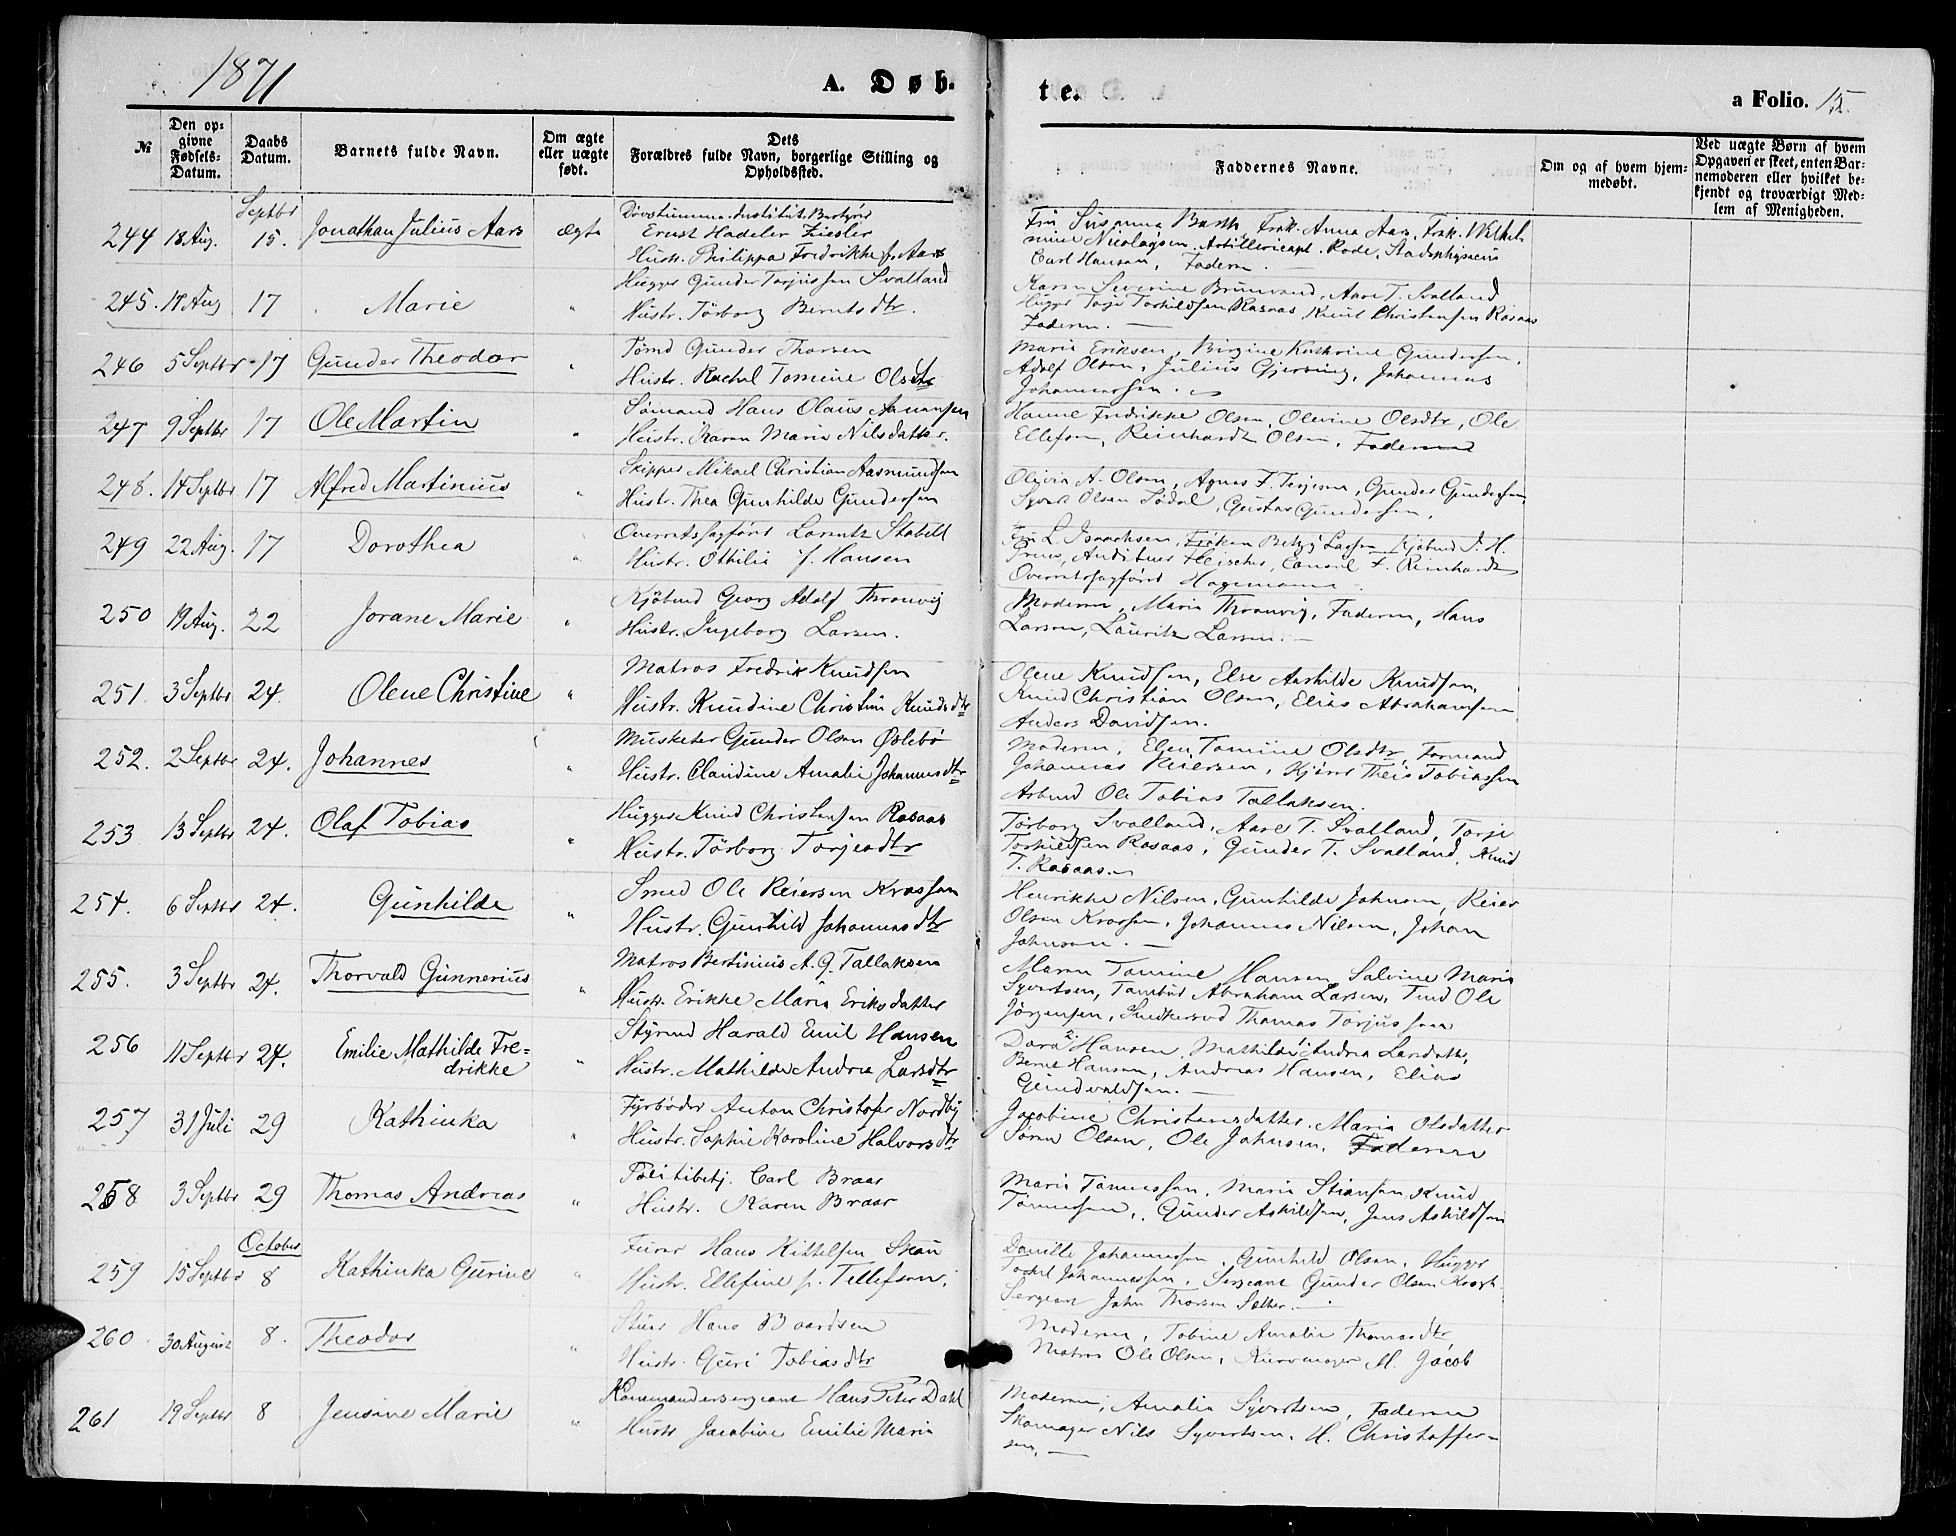 1871
A. Døb-
te.
a Folio. 15.
№
Den opgivne Fødsels-Datum.
Daabs Datum.
Barnets fulde Navn.
Om ægte eller uægte født.
Dets Forældres fulde Navn, borgerlige Stilling og Opholdssted.
Faddernes Navne.
Om og af hvem hjemmedøbt.
Ved uægte Børn af hvem Opgaven er skeet, enten Barnemoderen eller hvilket bekjendt og troværdigt Medlem af Menigheden.
Septbr
244 18 Aug. 15. Jonathan Julius Aars ægte
Døvstumme-Institut. Bestyrer
Ernst Hadeler Ziesler
Hustr. Philippa Fredrikke f. Aars
Fru Susanna Barth, Frøk. Anna Aars, Frøk. Wilhel-
mine Nicolaysen, Artillericapt. Rode, Stadsphysicus
Carl Hansen, Faderen. —
245. 17 Aug 17 Marie "
Hugger Gunder Torjussen Svalland
Hustr. Tørborg Berntsdtr.
Karen Severine Brunvand, Aase T. Svalland
Hugger Torje Torkildsen Rosaas, Knud Christensen Rosaas
Faderen. —
246 5 Septbr 17 Gunder Theodor "
Tømd Gunder Thorsen
Hustr. Rachel Tomine Olsdtr
Maria Eriksen, Birgine Kathrine Gundersen,
Adolf Olsen, Julius Gjersing, Johannes
Johannessen.
247 9 Septbr 17 Ole Martin "
Sømand Hans Olaus Aanensen
Hustr. Karen Maria Nilsdatter.
Hanne Fredrikke Olsen, Olevine Olsdtr, Ole
Ellefsen, Reinhardt Olsen, Faderen
248. 14 Septbr 17 Alfred Martinius "
Skipper Mikael Christian Aasmundsen
Hustr. Thea Gunhilde Gundersen
Olivia A. Olsen, Agnes F. Terjesen, Gunder Gundersen
Syvert Olsen Sødal, Gustav Gundersen.
249 22 Aug. 17 Dorothea "
Overretssagfører Lorentz Stabell
Hustr. Ottilia f. Hansen
Fru L. Isaachsen, Frøken Betzy Lassen, Kjøbmd J. H.
Preus, Auditeur Fleischer, Consul F. Reinhardt
Overretssagfører Hagemann
250 19 Aug. 22 Jorane Marie "
Kjøbmd Georg Adolf Thronvig
Hustr. Ingeborg Larsen.
Moderen, Maria Thronvig, Faderen, Hans
Larsen, Lauritz Larsen. —
251. 3 Septbr 24. Olene Christine "
Matros Fredrik Knudsen
Hustr. Knudine Christine Knudsdtr
Olene Knudsen, Else Aashilde Knudsen,
Knud Christian Olsen, Elias Abrahamsen
Anders Davidsen.
252. 2 Septbr 24. Johannes "
Musketer Gunder Olsen Øslebø
Hustr. Claudine Amalie Johannesdtr
Moderen, Elen Tomine Olsdtr, Formand
Johannes Reiersen, Kjører Theis Tobiassen
Arbmd Ole Tobias Tallaksen.
253 13 Septbr 24. Olaf Tobias "
Hugger Knud Christensen Rosaas
Hustr. Tørborg Torjesdtr
Tørborg Svalland, Aase T. Svalland, Torje
Torkildsen Rosaas, Gunder T. Svalland, Knud
T. Rosaas.
254. 6 Septbr 24. Gunhilde "
Smed Ole Reiersen Krossen
Hustr. Gunhild Johannesdtr
Henrikke Nilsen, Gunhilde Johnsen, Reier
Olsen Krossen, Johannes Nilsen, Johan
Johnsen. —
255. 3 Septbr 24. Thorvald Gunnerius "
Matros Bertinius A. G. Tallaksen
Hustr. Erikke Maria Eriksdatter
Maren Tomine Hansen, Salvine Maria
Syvertsen, Tambur Abraham Larsen, Tmd Ole
Jørgensen, Snedkersvd Thomas Torjussen
256 11 Septbr 24. Emilie Mathilde Fre=
drikke "
Styrmd Harald Emil Hansen
Hustr. Mathilde Andrea Larsdtr
Dora Hansen, Mathilde Andrea Larsdattr,
Bernt Hansen, Andreas Hansen, Elias
Gundvaldsen. —
257 31 Juli 29 Kathinka "
Fyrbøder Anton Christofer Nordby
Hustr. Sophie Karoline Halvorsdtr
Jacobine Christensdatter, Maria Olsdatter
Søren Olsen, Ole Johnsen, Faderen
258 3 Septbr 29 Thomas Andreas "
Politibetj. Carl Braar
Hustr. Karen Braar
Maria Tønnessen, Maria Stiansen, Knud
Tønnessen, Gunder Askildsen, Jens Askildsen
October
259 15 Septbr 8 Kathinka Gurine "
Furer Hans Kittelsen Skau
Hustr. Ellefine f. Tellefsen.
Danille Johannessen, Gunhild Olsen, Hugger
Torkel Johannessen, Sergeant Gunder Olsen Krogh
Sergeant John Thorsen Sæther. —
260 30 August 8. Theodor "
Stuer Hans Baardsen
Hustr. Guri Tobiasdtr
Moderen, Tobine Amalie Thomasdtr
Matros Ole Olsen, Kurvmager M. Jacob
261 19 Septbr 8 Jensine Marie "
Kommandersergeant Hans Peter Dahl
Hustr Jacobine Emilie Maria
Moderen, Amalia Syvertsen, Faderen
Skomager Nils Syvertsen, H. Christoffer-
sen. —